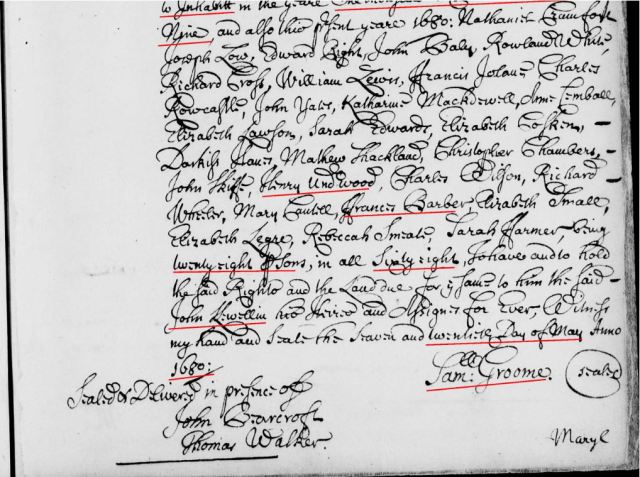 to Inhabitt in the yeare One thousand
Nine, and also this pſent yeare 1680: Nathaniel Crawfort
Joseph Low, Edward Right, John Baly, Rowland White,
Richard Croſs, William Lewis, ffrancis Charles
Rowcastle, John Yates, Katharine Mackdewell, Anne Kemball,
Elizabeth Lawſon, Sarah Edwards, Elizabeth
Darkiſs Hawes, Mathew Shackland, Christopher Chambers,
John Henry Undwood, Charles Wilson, Richard
Wheeler, Mary ffrances Barber Elizabeth Small,
Elizabeth Legre, Rebeccah Smeate, Sarah ffarmer, being
twenty eight pſons, in all Sixty eight, To have and to hold
the said Rights and the Land due for yͤ same to him the said
John Lewellin his Heires and Aſsignes for Ever, Witness
my hand and Seale the Seaven and twentieth Day of May Anno
1680:
Samͭˡ: Groome. sealed
Sealed & Delivered in presence off
John Bearcroft
Thomas Walker.
Maryl